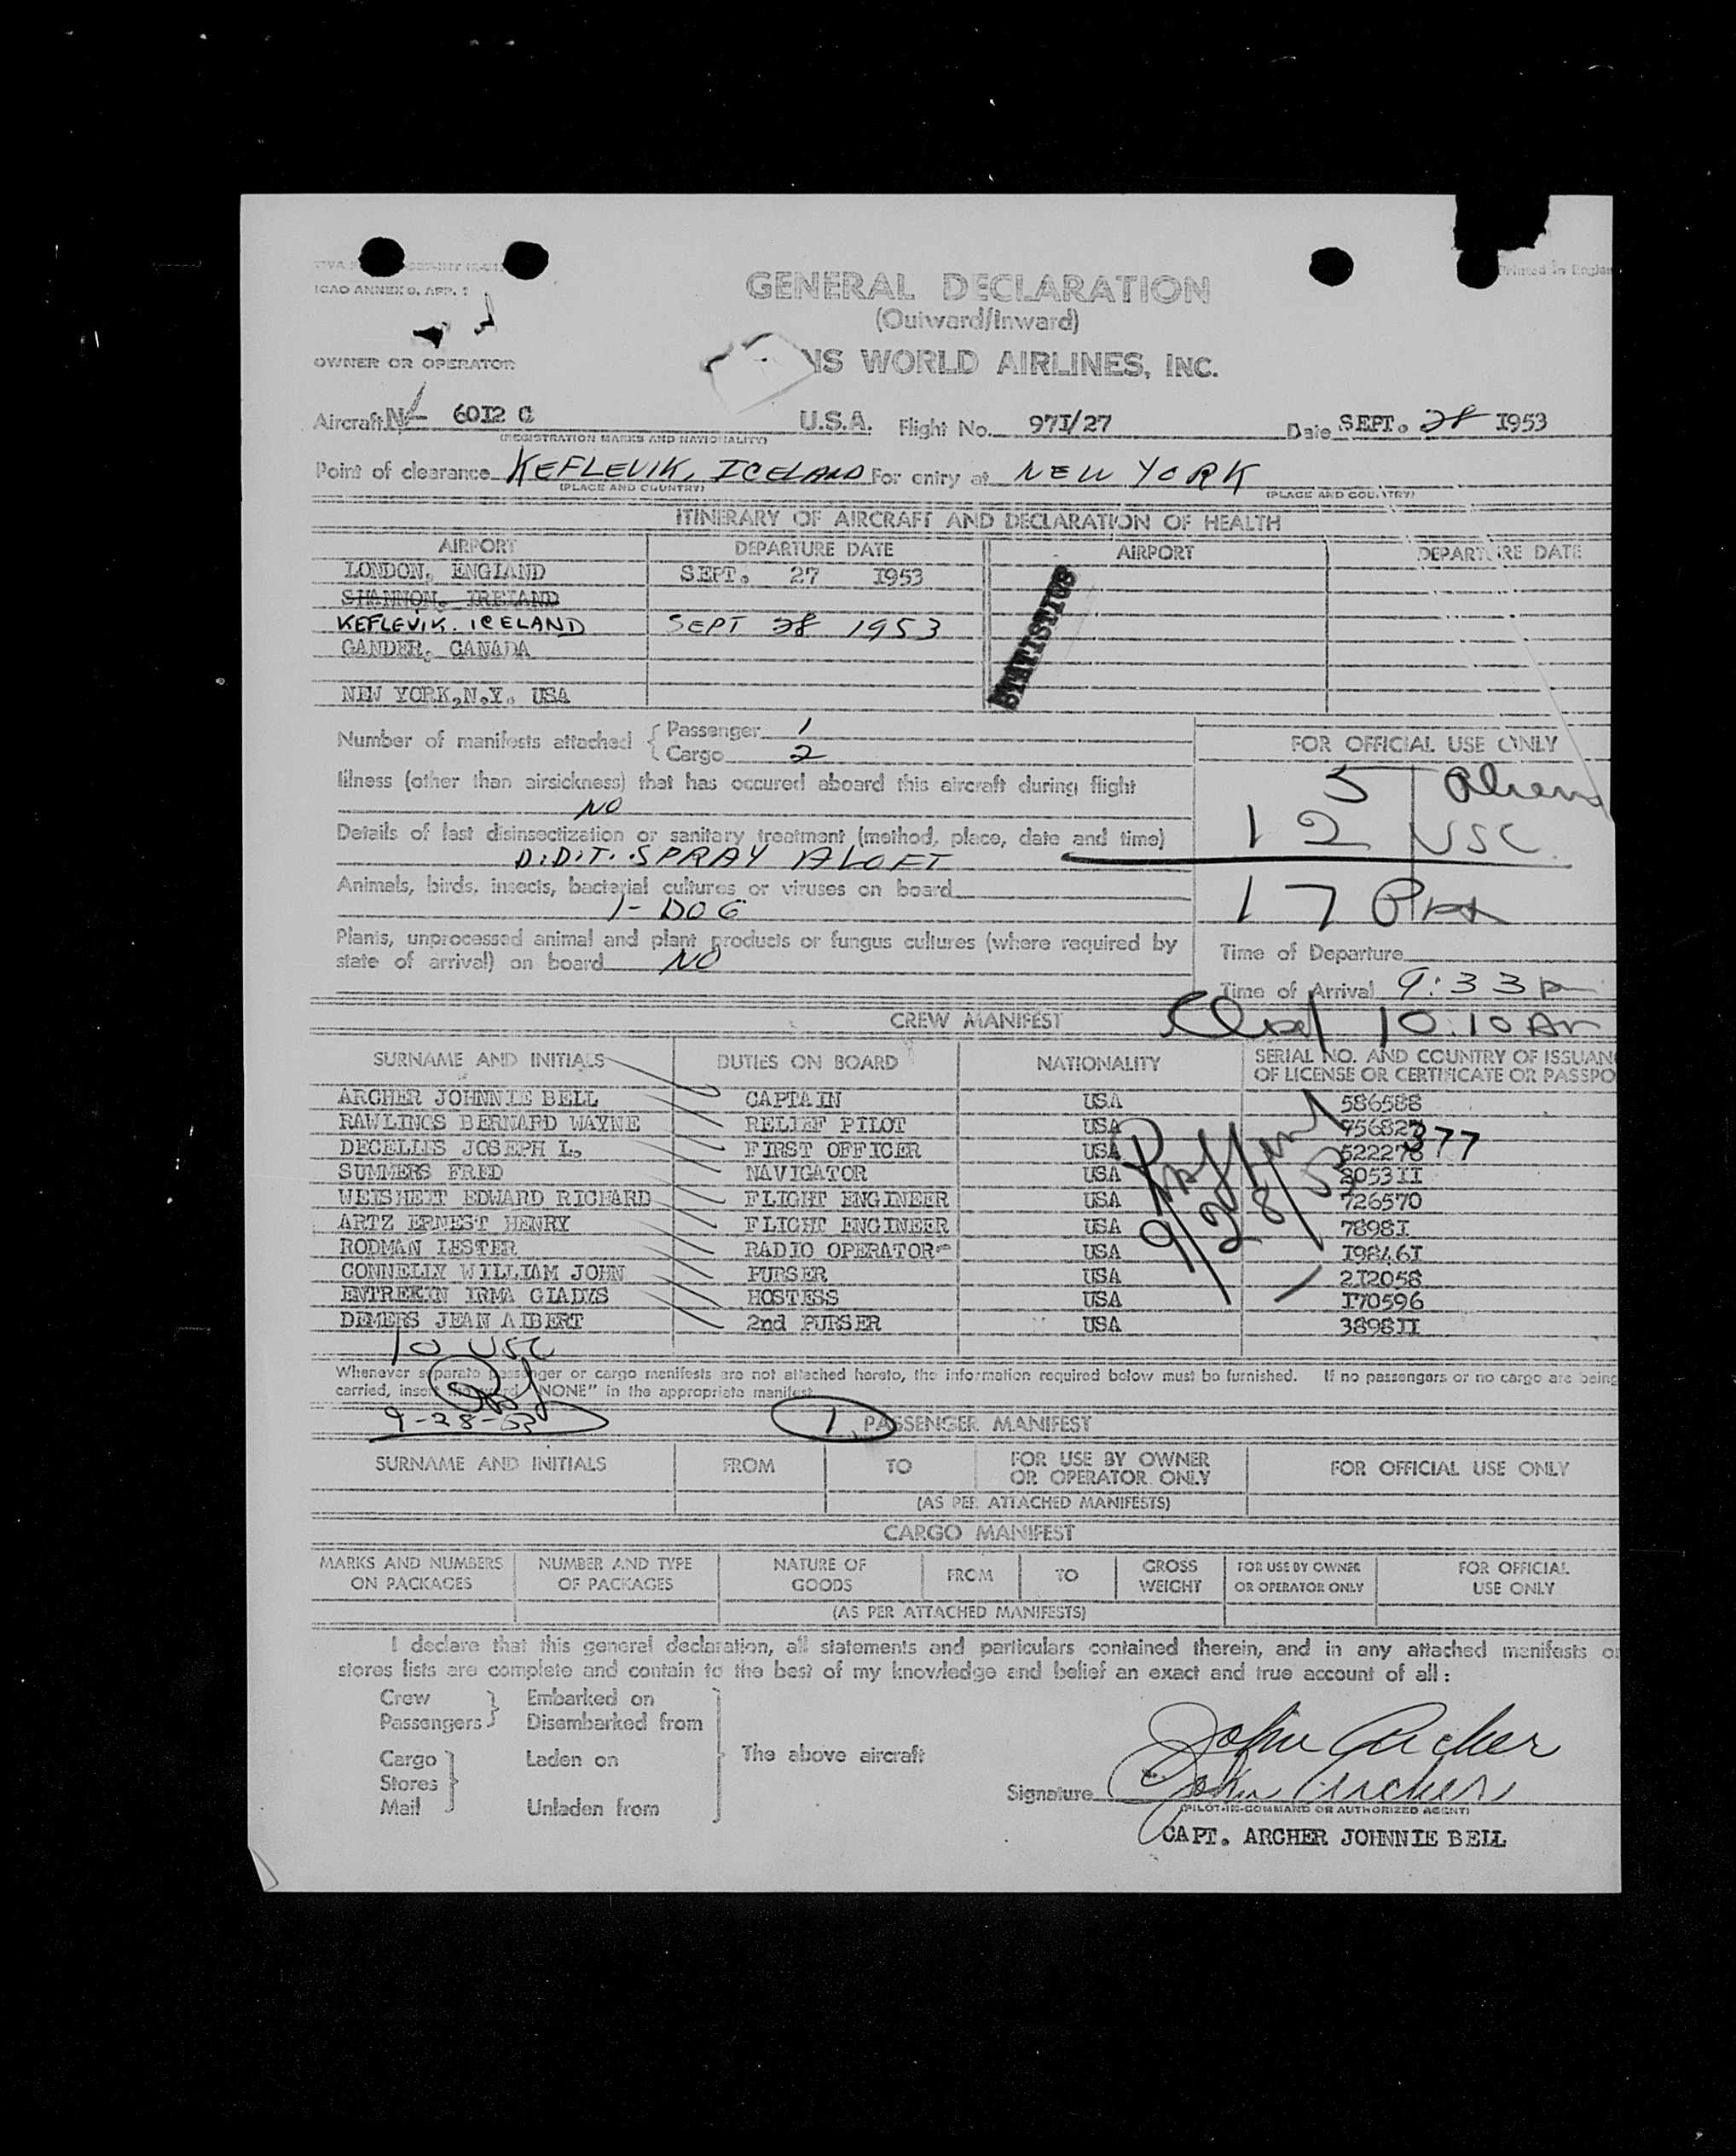 ICAO ANNEX 9, APP. 1
Printed in Englan
GENERAL DECLARATION
(Outward/Inward)
OWNER OR OPERATOR
NS WORLD AIRLINES, INC.
Aircraft N 6OI2 C U.S.A. Flight No. 97I/27 Date SEPT. 28 I953
(REGISTRATION MARKS AND NATIONALITY)
Point of clearance KEFLEVIK, ICELAND For entry at NEW YORK
(PLACE AND COUNTRY) (PLACE AND COUNTRY)
ITINERARY OF AIRCRAFT AND DECLARATION OF HEALTH
AIRPORT DEPARTURE DATE AIRPORT DEPARTURE DATE
LONDON, ENGLAND SEPT. 27 I953
SHANNON, IRELAND
KEFLEVIK. ICELAND SEPT 28 1953
GANDER, CANADA
NEW YORK,N.Y. USA
STATISTICS
Number of manifests attached { Passenger 1
Cargo 2
FOR OFFICIAL USE ONLY
5 Aliens
12 USC
17 Pax
Illness (other than airsickness) that has occured aboard this aircraft during flight
NO
Details of last disinsectization or sanitary treatment (method, place, date and time)
D.D.T. SPRAY ALOFT
Animals, birds, insects, bacterial cultures or viruses on board
1- DOG
Plants, unprocessed animal and plant products or fungus cultures (where required by
state of arrival) on board NO
Time of Departure
Time of Arrival 9:33
10:10
CREW MANIFEST
SURNAME AND INITIALS DUTIES ON BOARD NATIONALITY SERIAL NO. AND COUNTRY OF ISSUAN
OF LICENSE OR CERTIFICATE OR PASSPO
ARCHER JOHNNIE BELL CAPTAIN USA 586588
RAWLINGS BERNARD WAYNE RELIEF PILOT USA
377
DECELLES JOSEPH L. FIRST OFFICER USA
SUMMERS FRED NAVIGATOR USA
WEISHEIT EDWARD RICHARD FLIGHT ENGINEER USA 726570
ARTZ ERNEST HENRY FLIGHT ENGINEER USA 7898I
RODMAN LESTER RADIO OPERATOR USA I9846I
CONNELLY WILLIAM JOHN PURSER USA 2I2058
ENTREKIN IRMA GLADYS HOSTESS USA I70596
DEMERS JEAN ALBERT 2nd PURSER USA 3898II
9/28/53
10 USC
Whenever separate passenger or cargo manifests are not attached hereto, the information required below must be furnished. If no passengers or no cargo are being
carried, insert the word "NONE" in the appropriate manifest
9-28-53
1 PASSENGER MANIFEST
SURNAME AND INITIALS FROM TO FOR USE BY OWNER
OR OPERATOR ONLY FOR OFFICIAL USE ONLY
(AS PER ATTACHED MANIFESTS)
CARGO MANIFEST
MARKS AND NUMBERS
ON PACKAGES NUMBER AND TYPE
OF PACKAGES NATURE OF
GOODS FROM TO GROSS
WEIGHT FOR USE BY OWNER
OR OPERATOR ONLY FOR OFFICIAL
USE ONLY
(AS PER ATTACHED MANIFESTS)
I declare that this general declaration, all statements and particulars contained therein, and in any attached manifests or
stores lists are complete and contain to the best of my knowledge and belief an exact and true account of all :
Crew Embarked on
Passengers Disembarked from
Cargo Laden on The above aircraft
Stores
Mail Unladen from
John Archer
Signature John Archer
(PILOT-IN-COMMAND OR AUTHORIZED AGENT)
CAPT. ARCHER JOHNNIE BELL